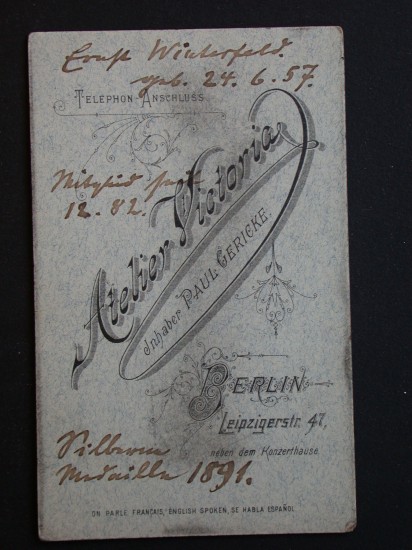 Ernst Winterfeld.
geb. 24. 6. 57.
TELEPHON-ANSCHLUSS.
Mitglied seit
12. 82.
Atelier Victoria
Inhaber PAUL GERICKE.
BERLIN
Leipzigerstr. 47,
neben dem Konzerthause.
Silberne
Medaille 1891.
ON PARLE FRANÇAIS, ENGLISH SPOKEN, SE HABLA ESPAÑOL.